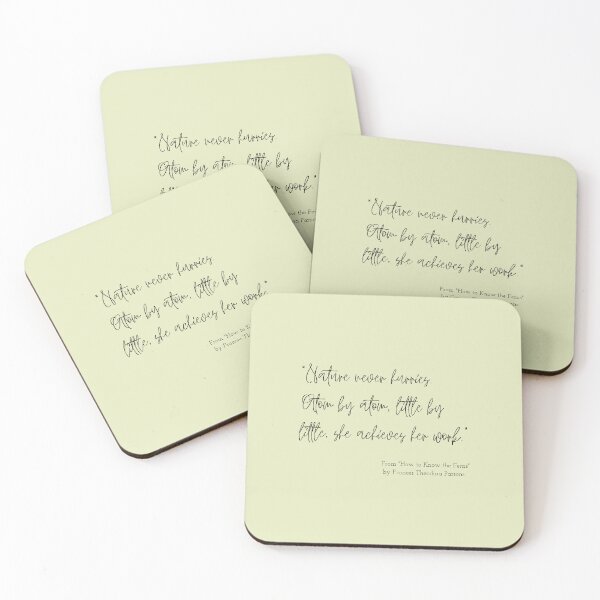 "Nature never hurries.
Atom by atom, little by
her work."
From "How to Know the Ferns"
"Nature never hurries.
Atom by atom, little by
little, she achieves her work."
From "How to Know the Ferns"
"Nature never hurries.
Atom by atom, little by
little, she achieves her work."
From "How to Know the
by Frances
"Nature never hurries.
Atom by atom, little by
little, she achieves her work."
From "How to Know the Ferns"
by Frances Theodora Parsons